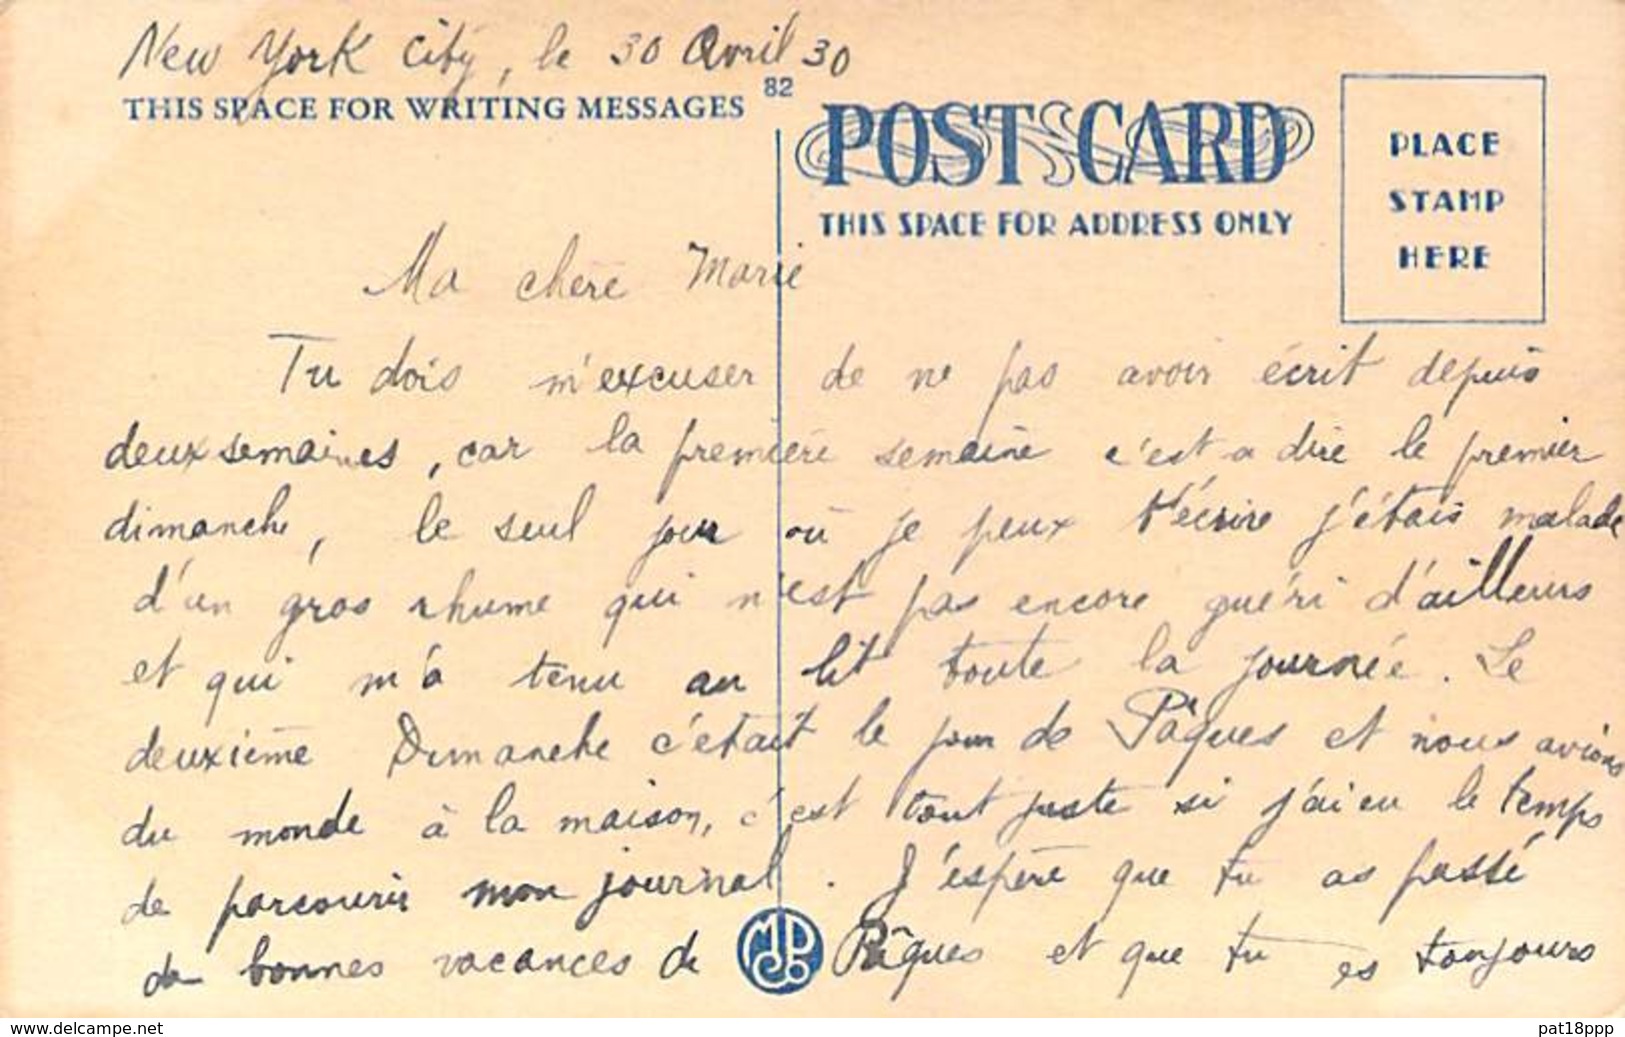 New York City, le 30 Avril 30
THIS SPACE FOR WRITING MESSAGES
82
POST CARD
THIS SPACE FOR ADDRESS ONLY
PLACE
STAMP
HERE
Ma chère Marie
Tu dois m'excuser de ne pas avoir écrit depuis
deux semaines, car la première semaine c'est a dire le premier
dimanche, le seul jour où je peux t'écrire j'étais malade
d'un gros rhume qui n'est pas encore guéri d'ailleurs
et qui m'a tenu au lit toute la journée. Le
deuxième Dimanche c'était le jour de Pâques et nous avions
du monde à la maison, c'est tout juste si j'ai eu le temps
de parcourir mon journal. J'espère que tu as passé
de bonnes vacances de Pâques et que tu es toujours
www.delcampe.net
pat18ppp